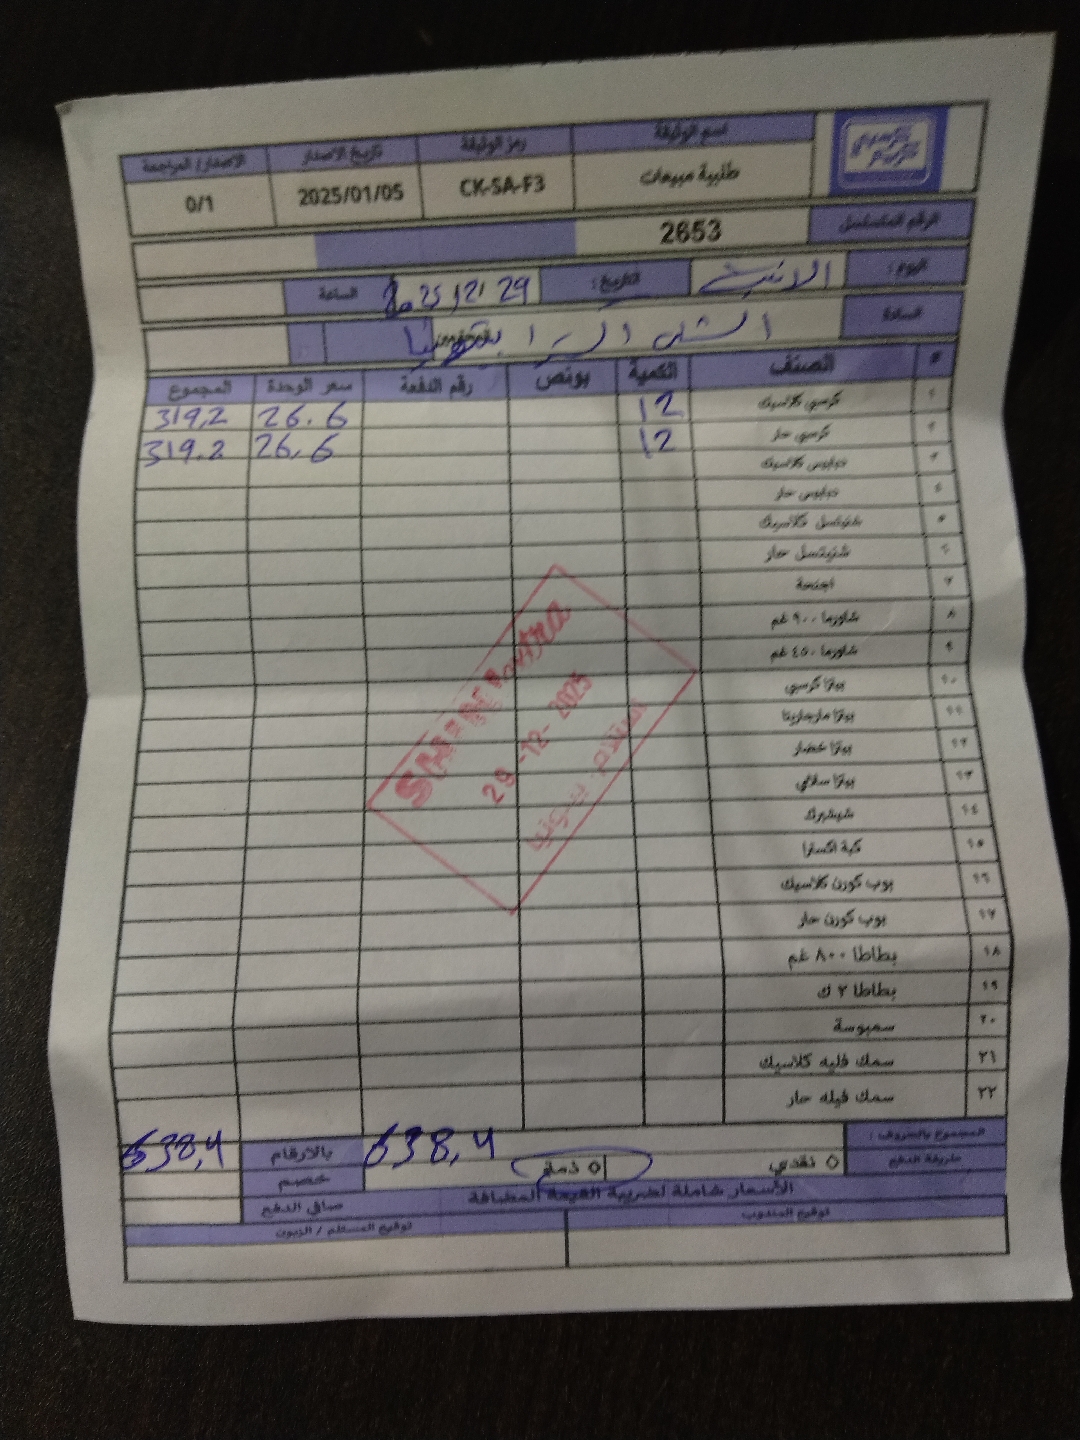 اسم الوثيقة رمز الوثيقة تاريخ الاصدار الاصدار/ المراجعة
طلبية مبيعات CK-SA-F3 2025/01/05 0/1
الرقم المتسلسل 2653
اليوم: الاثنين التاريخ: 2025/12/29 الساعة
السادة
# الصنف الكمية بونص رقم الدفعة سعر الوحدة المجموع
١ كرسبي كلاسيك 12 26.6 319,2
٢ كرسبي حار 12 26,6 319.2
٣ دبابيس كلاسيك
٤ دبابيس حار
٥ شنيتسل كلاسيك
٦ شنيتسل حار
٧ اجنحة
٨ شاورما ٩٠٠ غم
٩ شاورما ٤٥٠ غم
١٠ بيتزا كرسبي
١١ بيتزا مارجاريتا
١٢ بيتزا خضار
١٣ بيتزا سلامي
١٤ شيشبرك
١٥ كبة اكسترا
١٦ بوب كورن كلاسيك
١٧ بوب كورن حار
١٨ بطاطا ٨٠٠ غم
١٩ بطاطا ٢ ك
٢٠ سمبوسة
٢١ سمك فليه كلاسيك
٢٢ سمك فيله حار
29-12-2025
المجموع بالحروف: 638,4 بالارقام 638,4
طريقة الدفع O نقدي O ذمم خصم
الأسعار شاملة لضريبة القيمة المضافة صافي الدفع
توقيع المندوب توقيع المستلم / الزبون